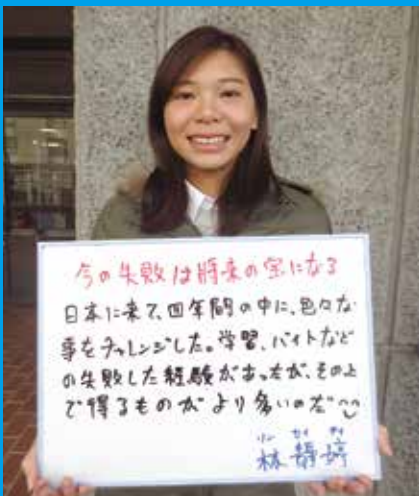 今の失敗は将来の宝になる
日本に来て、四年間の中に、色々な
事をチャレンジした。学習、バイトなど
の失敗した経験があったが、その上
で得るものがより多いのだ^^
リン セイ テイ
林 靜婷